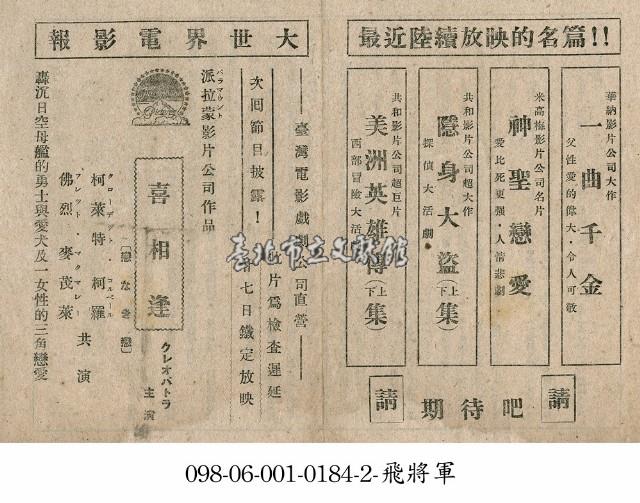 最近陸續放映的名篇!!
華納影片公司大作
一曲千金
父性愛的偉大·令人可敬
米高梅影片公司名片
神聖戀愛
愛比死更强·人情悲劇
共和影片公司超大作
隱身大盜(上下集)
探偵大活劇·
共和影片公司超巨片
美洲英雄傳(上下集)
西部冒險大活
請 期待吧 請
大世界電影報
臺灣電影戲劇公司直營
次回節目披露！
片爲檢查遲延
七日鐵定放映
パラマウント
派拉蒙影片公司作品
喜相逢
〔戀なき戀〕
クレオパトラ
主演
柯萊特·柯羅
佛烈·麥茂萊
共演
轟沉日空母艦的勇士與愛犬及一女性的三角戀愛
臺北市立文獻館
098-06-001-0184-2-飛將軍